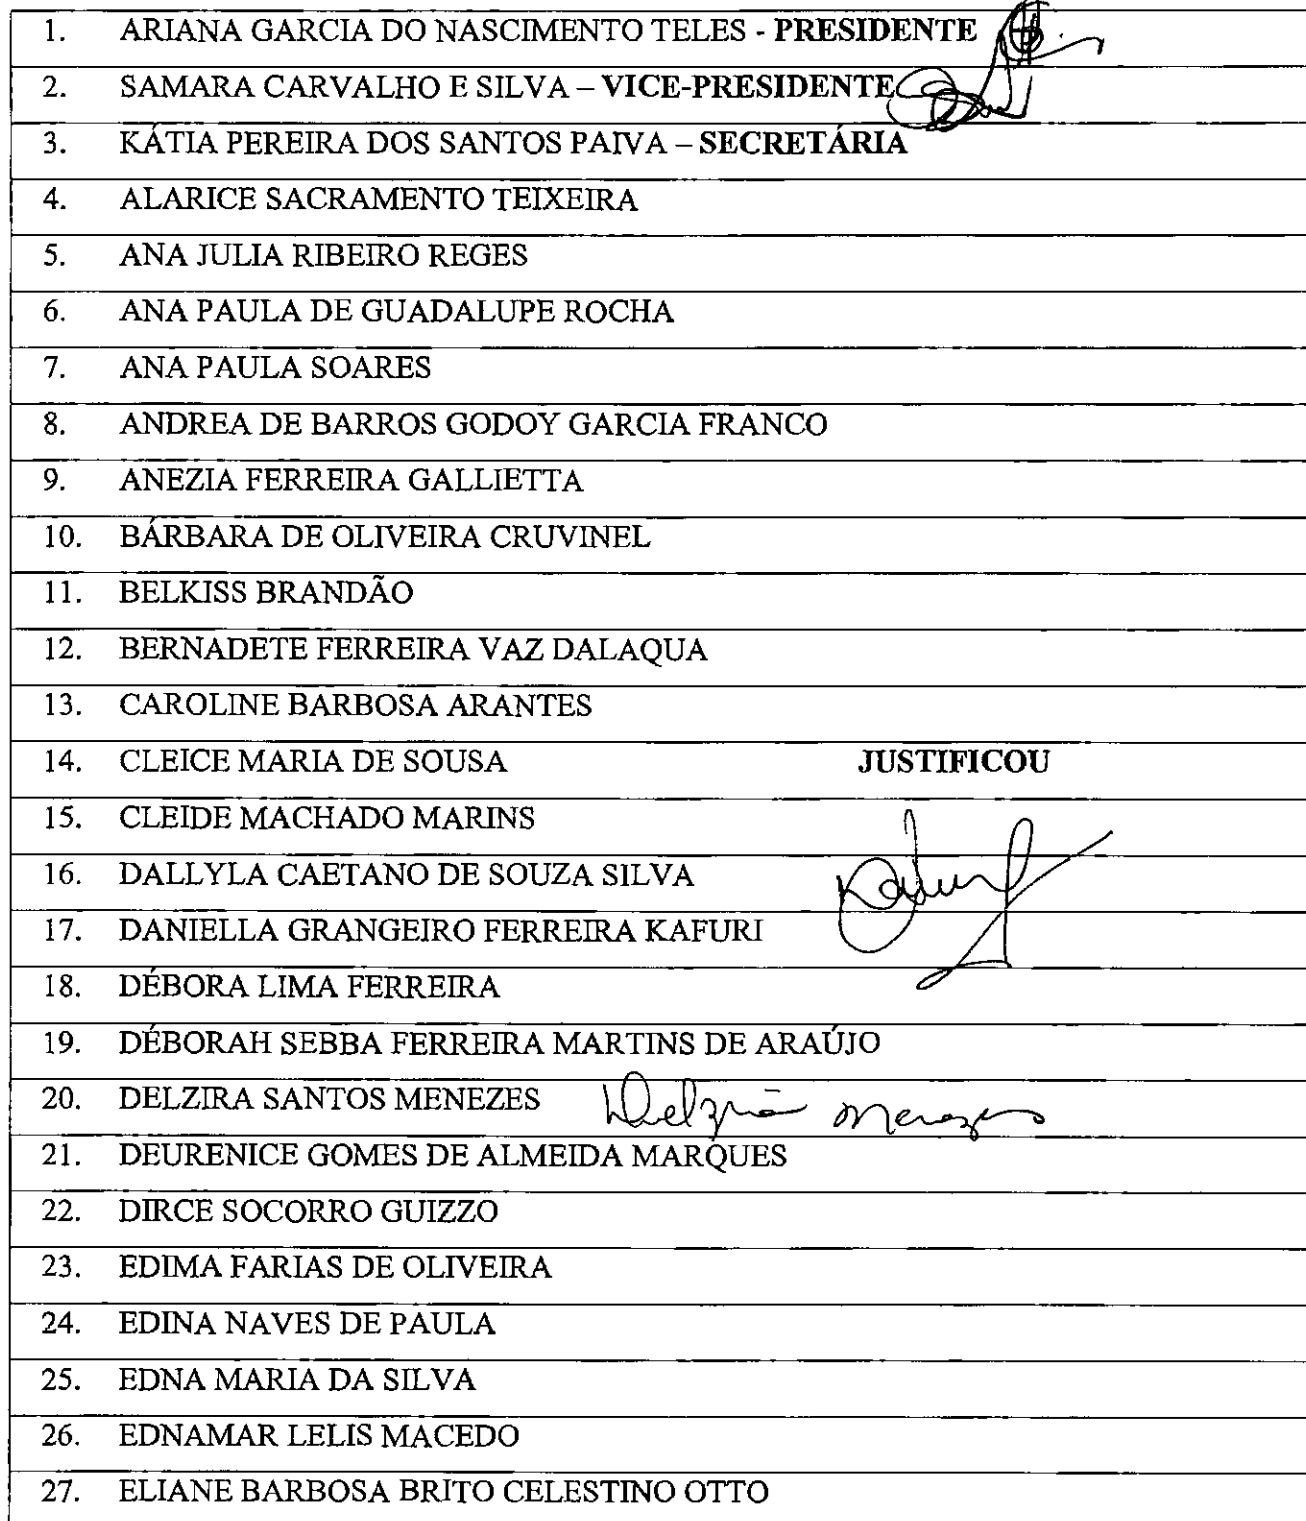 1. ARIANA GARCIA DO NASCIMENTO TELES - PRESIDENTE
2. SAMARA CARVALHO E SILVA – VICE-PRESIDENTE
3. KÁTIA PEREIRA DOS SANTOS PAIVA – SECRETÁRIA
4. ALARICE SACRAMENTO TEIXEIRA
5. ANA JULIA RIBEIRO REGES
6. ANA PAULA DE GUADALUPE ROCHA
7. ANA PAULA SOARES
8. ANDREA DE BARROS GODOY GARCIA FRANCO
9. ANEZIA FERREIRA GALLIETTA
10. BÁRBARA DE OLIVEIRA CRUVINEL
11. BELKISS BRANDÃO
12. BERNADETE FERREIRA VAZ DALAQUA
13. CAROLINE BARBOSA ARANTES
14. CLEICE MARIA DE SOUSA JUSTIFICOU
15. CLEIDE MACHADO MARINS
16. DALLYLA CAETANO DE SOUZA SILVA
17. DANIELLA GRANGEIRO FERREIRA KAFURI
18. DÉBORA LIMA FERREIRA
19. DÉBORAH SEBBA FERREIRA MARTINS DE ARAÚJO
20. DELZIRA SANTOS MENEZES Delzira Menezes
21. DEURENICE GOMES DE ALMEIDA MARQUES
22. DIRCE SOCORRO GUIZZO
23. EDIMA FARIAS DE OLIVEIRA
24. EDINA NAVES DE PAULA
25. EDNA MARIA DA SILVA
26. EDNAMAR LELIS MACEDO
27. ELIANE BARBOSA BRITO CELESTINO OTTO